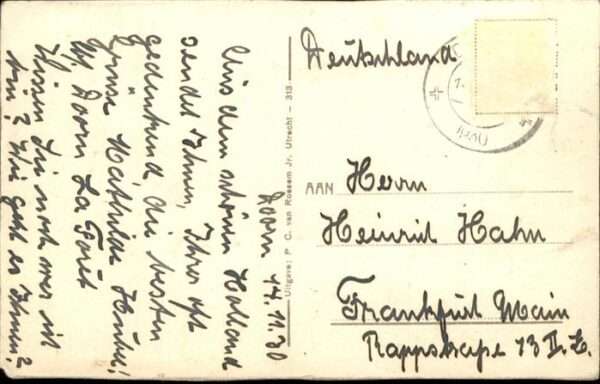 Doorn 14.11.30
Aus dem schönen Holland
sendet Ihnen, Ihrer oft
gedenkend die besten
Grüße Mathilde
Doorn La Forêt
Wissen Sie noch wer ich
bin? Wie geht es Ihnen?
Uitgave: P. C. van Rossem Jr. Utrecht - 313
Deutschland
AAN Herrn
Heinrich Hahn
Frankfurt Main
13 II.